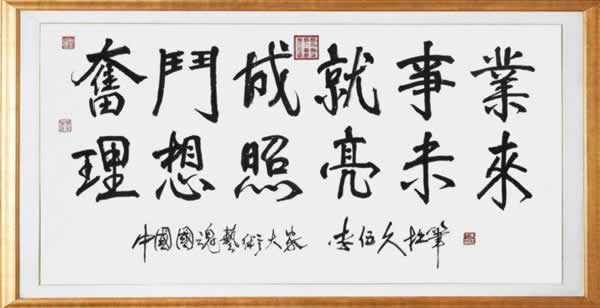 奮鬥成就事業
理想照亮未來
中國國魂藝術大家 李伍久拙筆